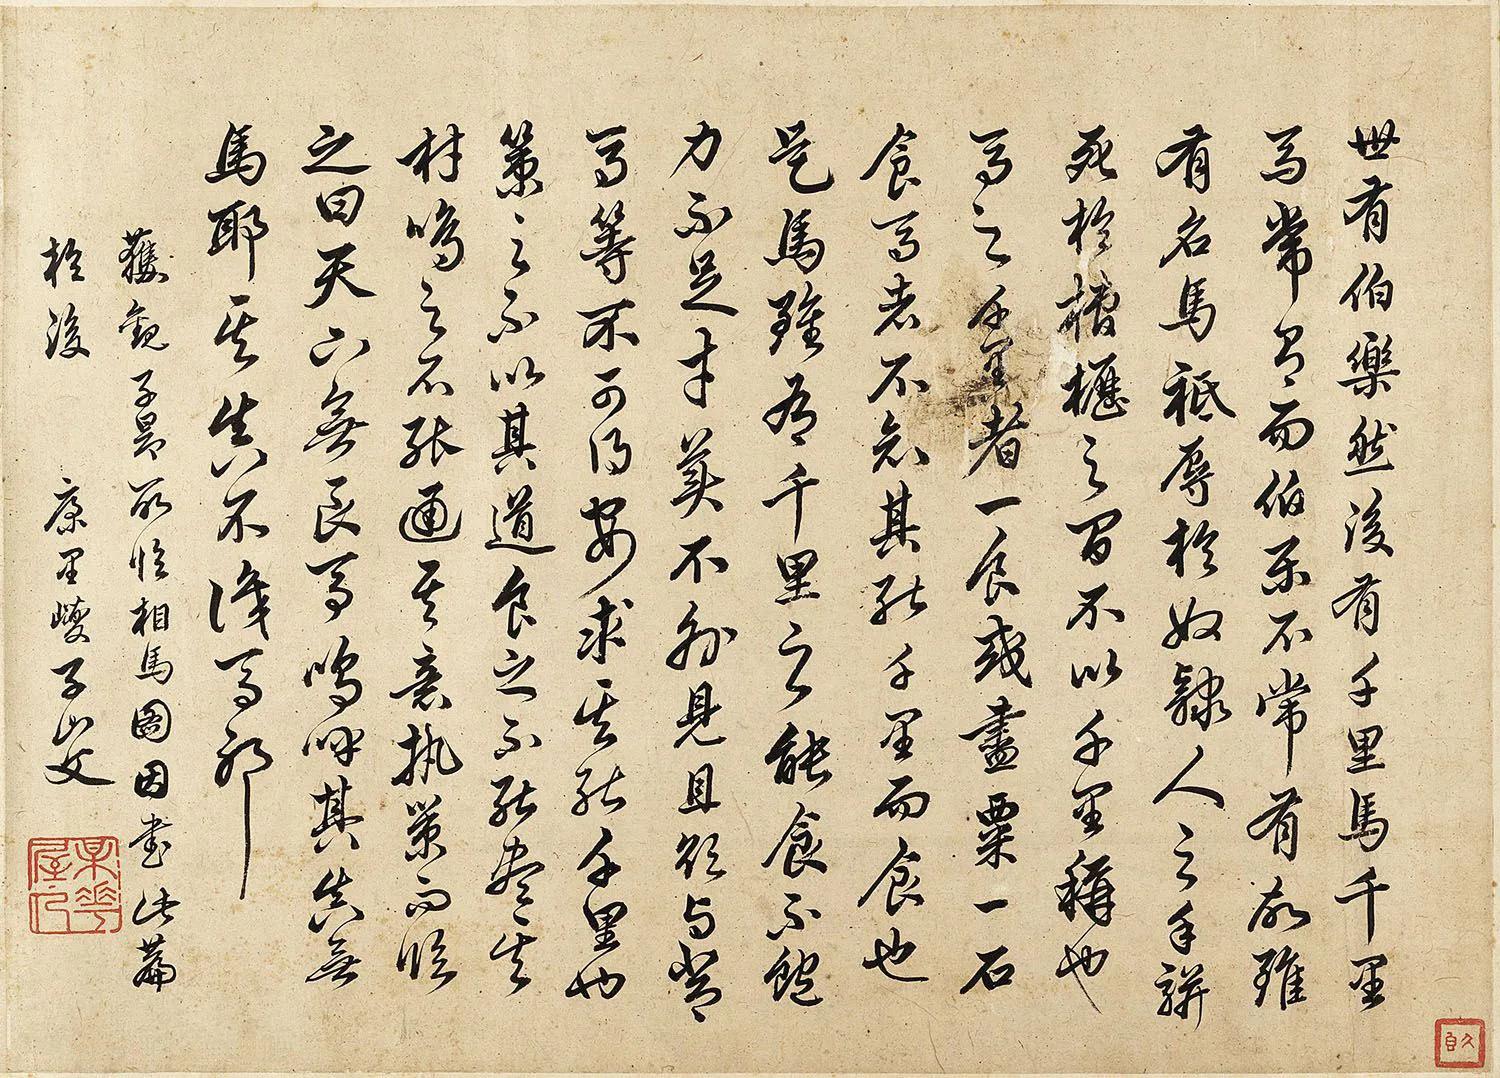 世有伯樂然後有千里馬千里
馬常有而伯樂不常有故雖
有名馬祗辱於奴隸人之手駢
死於槽櫪之間不以千里稱也
馬之千里者一食或盡粟一石
食馬者不其能千里而食也
是馬雖有千里之能食不飽
力不足才美不外見且欲與常
馬等不可得安求其能千里也
策之不以其道食之不能盡其
材鳴之不能通其意執策而臨
之曰天下無良馬嗚呼其真無
馬耶其真不識馬耶
獲觀子昂所臨相馬圖因書此篇
於後 康里巎子山父